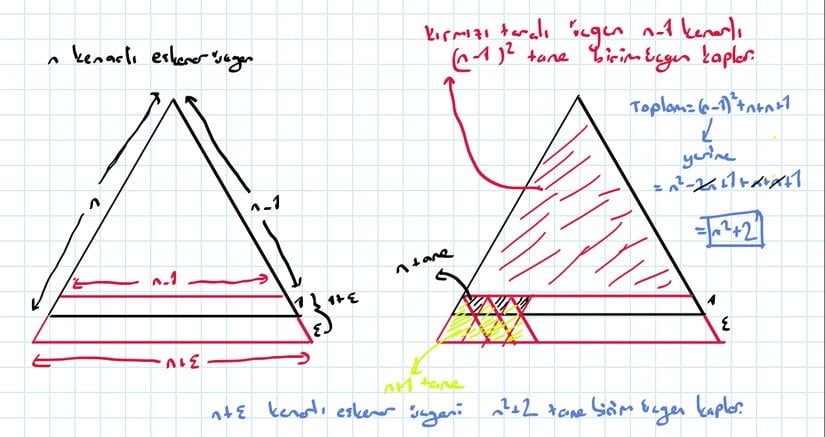 n kenarlı eşkenar üçgen
Kırmızı taralı üçgen n-1 kenarlı
(n-1)² tane birim üçgen kaplar.
Toplam=(n-1)²+n+n+1
yerine
= n²-2n+1+n+n+1
= n²+2
n
n-1
n-1
1
1+ε
ε
n+ε
n tane
1
ε
n+1 tane
n+ε kenarlı eşkenar üçgeni n²+2 tane birim üçgen kaplar.